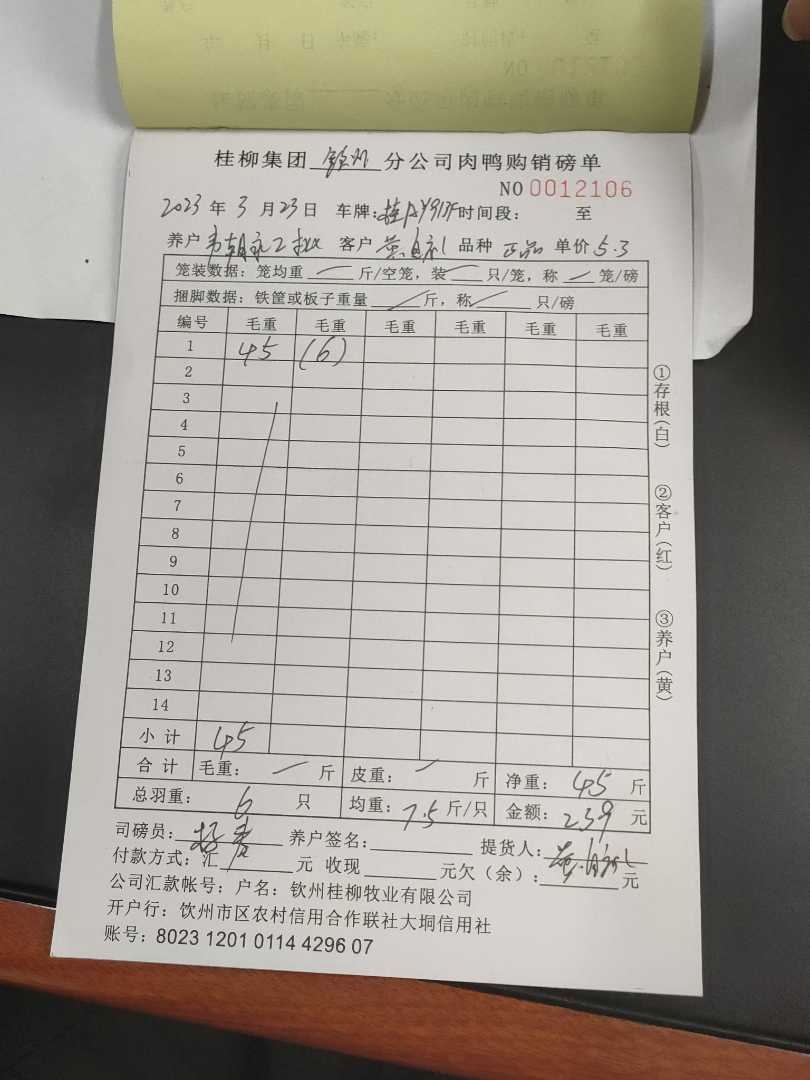 桂柳集团 钦州 分公司肉鸭购销磅单
NO 0012106
2023 年 3 月 23 日 车牌: 时间段: 至
养户 韦朝 客户 品种 正品 单价 5.3
笼装数据: 笼均重 — 斤/空笼, 装 — 只/笼, 称 — 笼/磅
捆脚数据: 铁筐或板子重量 斤, 称 只/磅
编号 毛重 毛重 毛重 毛重 毛重 毛重
1 45 (6)
2
3
4
5
6
7
8
9
10
11
12
13
14
小计 45
合计 毛重: — 斤 皮重: — 斤 净重: 45 斤
总羽重: 6 只 均重: 7.5 斤/只 金额: 239 元
司磅员: 养户签名: 提货人:
付款方式: 汇 元 收现 元欠(余): 元
公司汇款帐号: 户名: 钦州桂柳牧业有限公司
开户行: 饮州市区农村信用合作联社大垌信用社
账号: 8023 1201 0114 4296 07
①存根(白)
②客户(红)
③养户(黄)